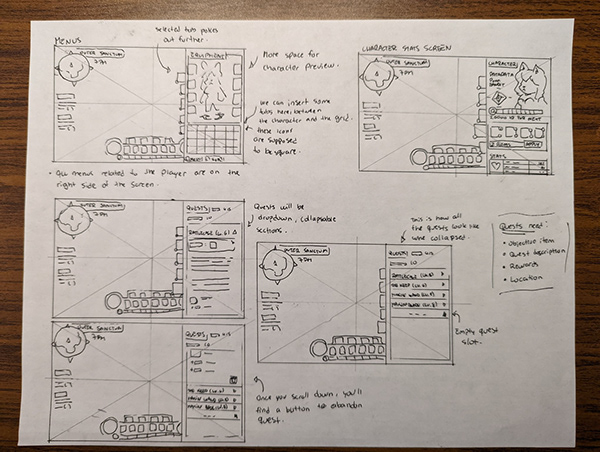 MENUS
selected tabs pokes
out further.
OUTER SANCTUM
7 PM
EQUIPMENT
More space for
character preview.
we can insert some
tabs here, between
the character and the grid.
these icons
are supposed
to be square.
• All menus related to the player are on the
right side of the screen.
CHARACTER STATS SCREEN
OUTER SANCTUM
7 PM
CHARACTER
STATS
OUTER SANCTUM
7 PM
QUESTS
Quests will be
dropdown, collapsable
sections.
This is how all
the quests look like
when collapsed.
OUTER SANCTUM
7 PM
QUESTS
Empty quest
slot.
Quests need:
• Objective item
• Quest description
• Rewards
• Location
OUTER SANCTUM
7 PM
QUESTS
Once you scroll down, you'll
find a button to abandon
quest.